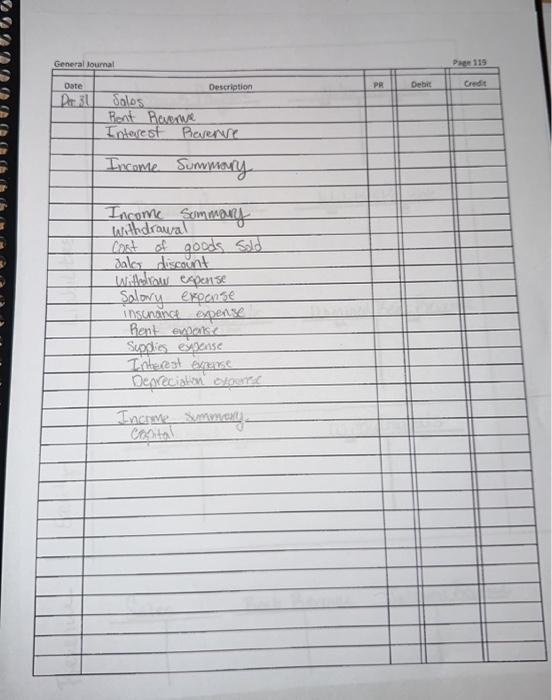 General Journal Page 119
Date Description PR Debit Credit
Dec 31 Sales
Rent Revenue
Interest Revenue
Income Summary
Income Summary
Withdrawal
Cost of goods Sold
Sales discount
Withdraw expense
Salary expense
insurance expense
Rent expense
Supplies expense
Interest expense
Depreciation expense
Income Summary
Capital